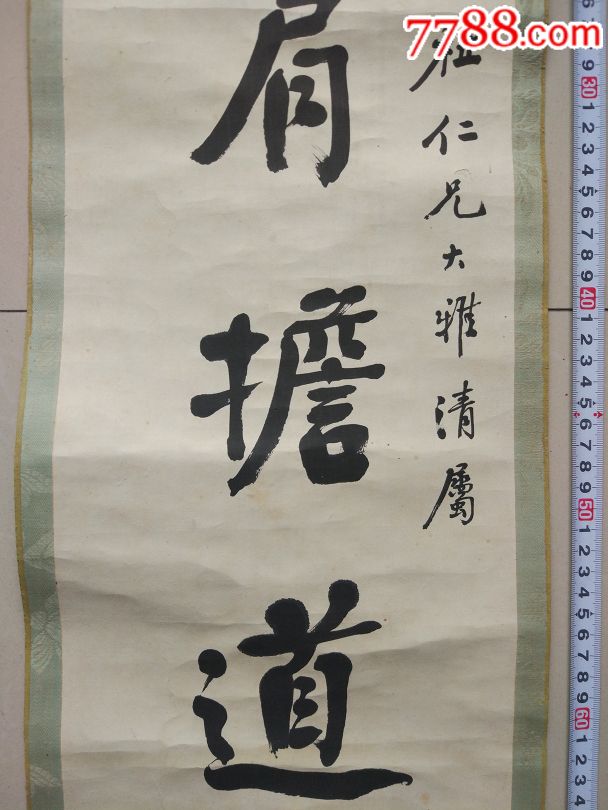 7788.com
仁兄大雅清屬
肩擔道
9 30 1 2 3 4 5 6 7 8 9 40 1 2 3 4 5 6 7 8 9 50 1 2 3 4 5 6 7 8 9 60 1 2 3 4